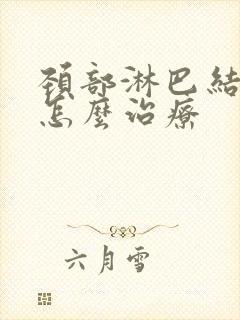 頸部淋巴結
怎麼治療
六月雪